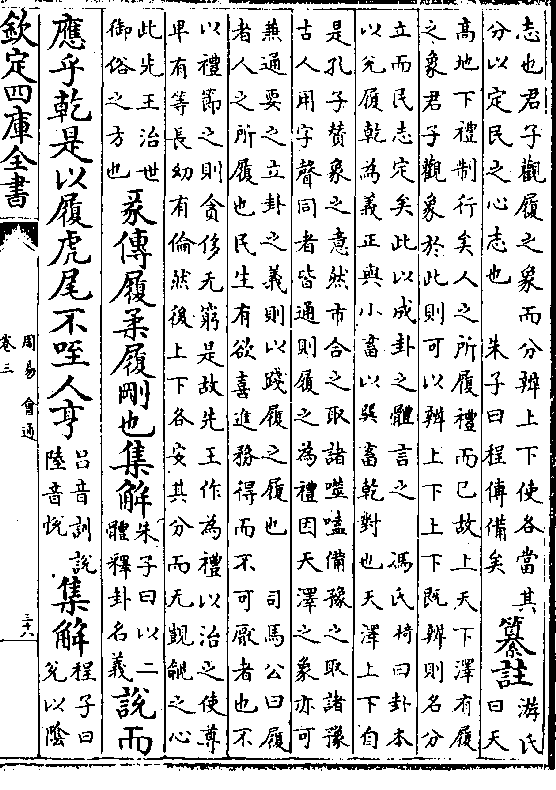 志也君子觀履之象而分辨上下使各當其
分以定民之心志也　朱子曰程傳備矣
纂註
游氏
曰天
高地下禮制行矣人之所履禮而已故上天下澤有履
之象君子觀象於此則可以辨上下上下既辨則名分
立而民志定矣此以成卦之體言之　馮氏椅曰卦本
以兊履乾為義正與小畜以巽畜乾對也天澤上下自
是孔子賛象之意然市合之取諸噬嗑備豫之取諸豫
古人用字聲同者皆通則履之為禮因天澤之象亦可
兼通要之立卦之義則以踐履之履也　司馬公曰履
者人之所履也民生有欲喜進務得而不可厭者也不
以禮節之則貪侈无窮是故先王作為禮以治之使尊
卑有等長幼有倫然後上下各安其分而无覬覦之心
此先王治世
御俗之方也
彖傳履柔履剛也集解
朱子曰以二
體釋卦名義
說而
應乎乾是以履虎尾不咥人亨
呂音訓說
陸音悅
集解
程子曰
兊以陰
欽定四庫全書
周易會通
卷三
三十六